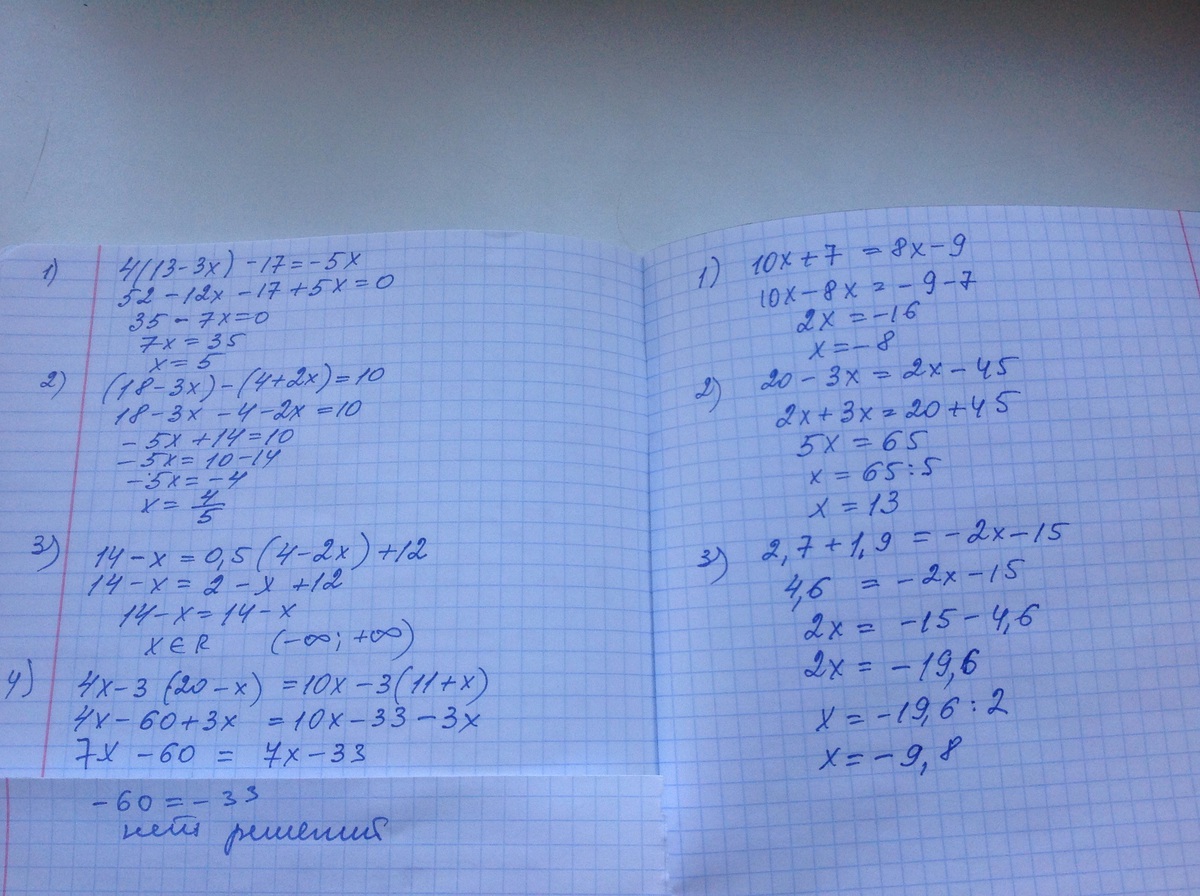 1) 4(13-3x)-17=-5x
52-12x-17+5x=0
35-7x=0
7x=35
x=5
2) (18-3x)-(4+2x)=10
18-3x-4-2x=10
-5x+14=10
-5x=10-14
-5x=-4
x=4/5
3) 14-x=0,5(4-2x)+12
14-x=2-x+12
14-x=14-x
x∈R (-∞; +∞)
4) 4x-3(20-x)=10x-3(11+x)
4x-60+3x=10x-33-3x
7x-60=7x-33
-60=-33
нет решений
1) 10x+7=8x-9
10x-8x=-9-7
2x=-16
x=-8
2) 20-3x=2x-45
2x+3x=20+45
5x=65
x=65:5
x=13
3) 2,7+1,9=-2x-15
4,6=-2x-15
2x=-15-4,6
2x=-19,6
x=-19,6:2
x=-9,8